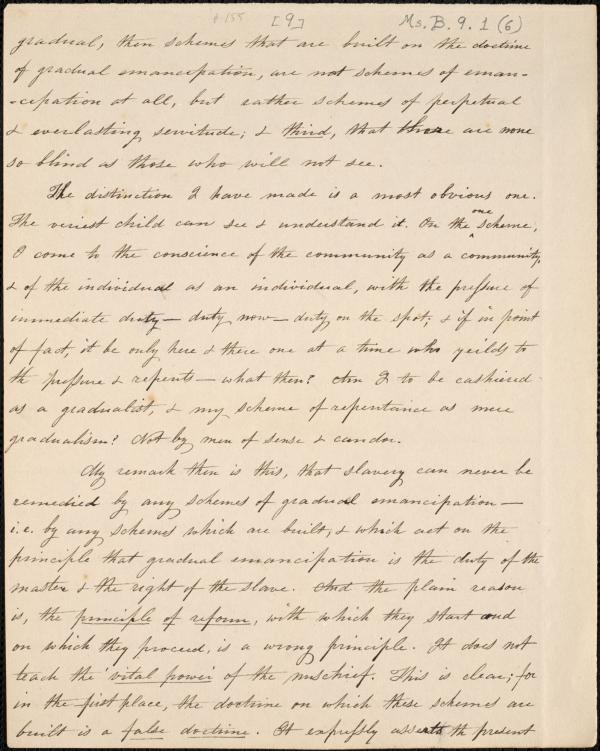 # 155 [9] Ms. B. 9. 1 (6)
gradual, then schemes that are built on the doctrine
of gradual emancipation, are not schemes of eman-
-cipation at all, but rather schemes of perpetual
& everlasting servitude; & third, that there are none
so blind as those who will not see.
The distinction I have made is a most obvious one.
The veriest child can see & understand it. On the one scheme,
I come to the conscience of the community as a community,
& of the individual as an individual, with the pressure of
immediate duty — duty now — duty on the spot; & if in point
of fact, it be only here & there one at a time who yeilds to
the pressure & repents — what then? Am I to be cashiered
as a gradualist, & my scheme of repentance as mere
gradualism? Not by men of sense & candor.
My remark then is this, that slavery can never be
remedied by any schemes of gradual emancipation —
i.e. by any schemes which are built, & which act on the
principle that gradual emancipation is the duty of the
master & the right of the slave. And the plain reason
is, the principle of reform, with which they start and
on which they proceed, is a wrong principle. It does not
teach the vital power of the mischief. This is clear; for
in the first place, the doctrine on which these schemes are
built is a false doctrine. It expressly asserts the present